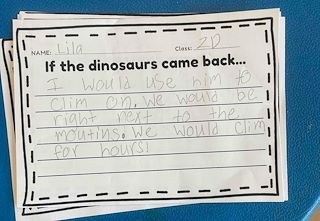 NAME: Lila Class: 2D
If the dinosaurs came back...
I would use him to
clim on. We would be
right next to the
moutins. We would clim
for hours!